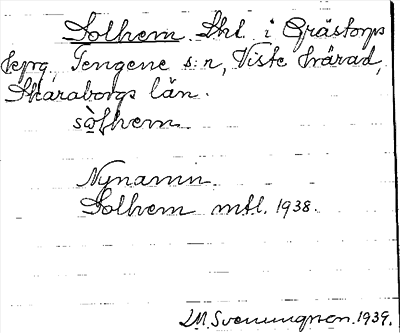 Solhem. Shl. i Grästorps
keprg, Tengene s:n, Viste härad,
Skaraborgs län.
sòlhem
Nynamn.
Solhem mtl. 1938.
I.M. Svenungsson. 1939.